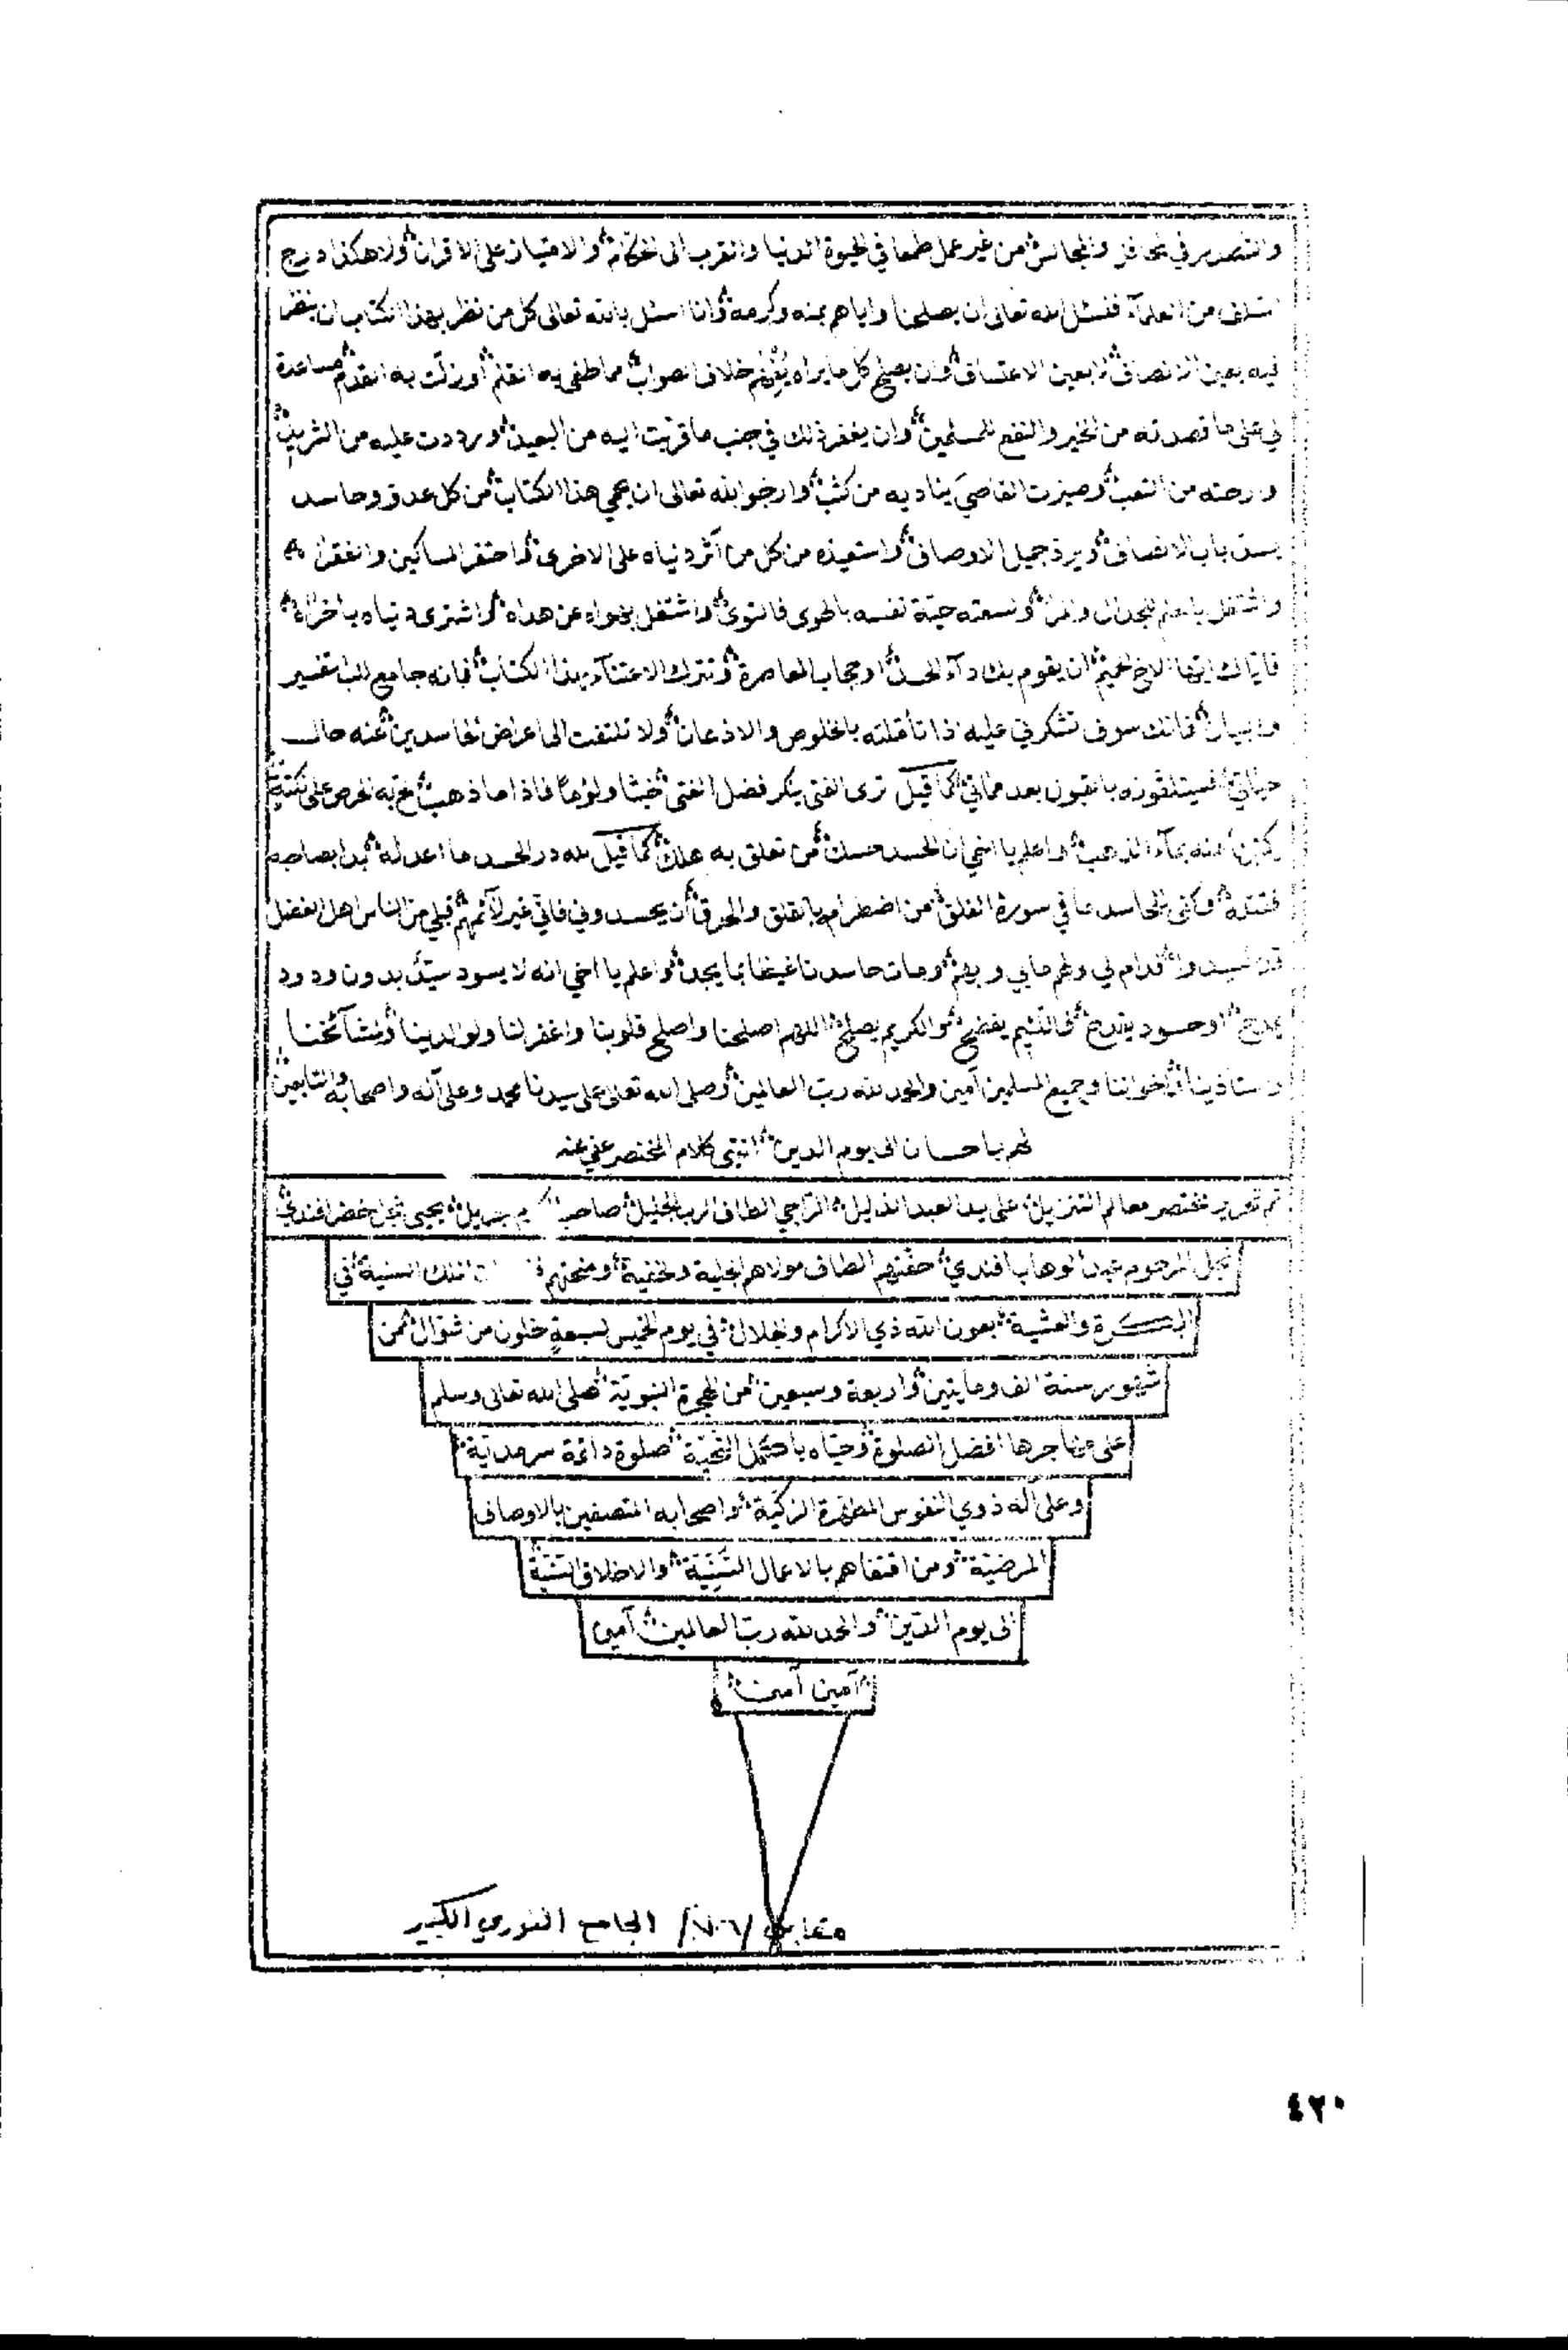 والتصدير في المحافل والمجالس من غير عمل طمعا في الحيوة الدنيا والتقرب الى الحكام والامتياز على الاقران ولا هكذا درج
السلف من العلمآء فنسئل الله تعالى ان يصلحنا واياهم بمنه وكرمه وانا اسئل بالله تعالى كل من نظر بهذا الكتاب ان ينظر
فيه بعين الانصاف لا بعين الاعتساف وان يصلح كل ما يراه خلاف الصواب مما طغى به القلم او زلت به القدم مساعدة
لي على ما قصدته من الخير والنفع للمسلمين وان يغفر ذلك في جنب ما قربت اليه من البعيد ورددت عليه من الشريد
وارحته من التعب وصيرت القاصي يناديه من كثب وارجو الله تعالى ان يحمي هذا الكتاب من كل عدو وحاسد
يسد باب الانصاف ويرد جميل الاوصاف واستعيذه من كل من آثر دنياه على الاخرى واحتقر المساكين والفقرا
واشتغل بالعلم للجدال والمرا ولسعته حية نفسه بالهوى فالتوى واشتغل بهواه عن هداه واشترى دنياه باخراه
فاياك ايها الاخ الحميم ان يقوم بك دآء الحسد او حجاب المعاصرة وتترك الاعتنآء بهذا الكتاب فانه جامع للباب التفسير
والبيان فانك سوف تشكرني عليه اذا تأملته بالخلوص والاذعان ولا تلتفت الى اعراض الحاسدين عنه حال
حياتي فسيتلقونه بالقبول بعد مماتي كما قيل ترى الفتى ينكر فضل الفتى خبثا ولؤما فاذا ما ذهب لج به الحرص على نكتة
يكتبها عنه بمآء الذهب واعلم يا اخي ان الحسد حسك من تعلق به هلك كما قيل لله در الحسد ما اعدله بدا بصاحبه
فقتله وكفى للحاسد ما في سورة الفلق من اضطرامه بالقلق والحرق ان يحسدوني فاني غير لآئمهم قبلي من الناس اهل الفضل
قد حسدوا فدام لي ولهم ما بي وما بهم ومات حاسدنا غيظا بما يجد واعلم يا اخي انه لا يسود سيد بدون ودود
يمدح او حسود يقدح فاللئيم يفضح والكريم يصلح اللهم اصلحنا واصلح قلوبنا واغفر لنا ولوالدينا ولمشآئخنا
واستاذينا واخواننا وجميع المسلمين آمين والحمد لله رب العالمين وصلى الله تعالى على سيدنا محمد وعلى آله واصحابه والتابعين
لهم باحسان الى يوم الدين انتهى كلام المختصر عفي عنه
تم تحرير مختصر معالم التنزيل على يد العبد الذليل الراجي الطاف الرب الجليل يحيى نجل خضر افندي
نجل المرحوم عبد الوهاب افندي حفتهم الطاف مولاهم الجلية والخفية ومنحتهم تلك السنية في
البكرة والعشية بعون الله ذي الاكرام والجلال في يوم الخميس لسبعة خلون من شوال من
شهور سنة الف ومايتين واربعة وسبعين من الهجرة النبوية صلى الله تعالى وسلم
على مهاجرها افضل الصلوة وحياه باكمل التحية صلوة دائمة سرمدية
وعلى آله ذوي النفوس المطهرة الزكية واصحابه المتصفين بالاوصاف
المرضية ومن اقتفاهم بالاعمال السنية والاخلاق
الى يوم الدين والحمد لله رب العالمين آمين
آمين آمين
الجامع النوري الكبير
٤٢٠